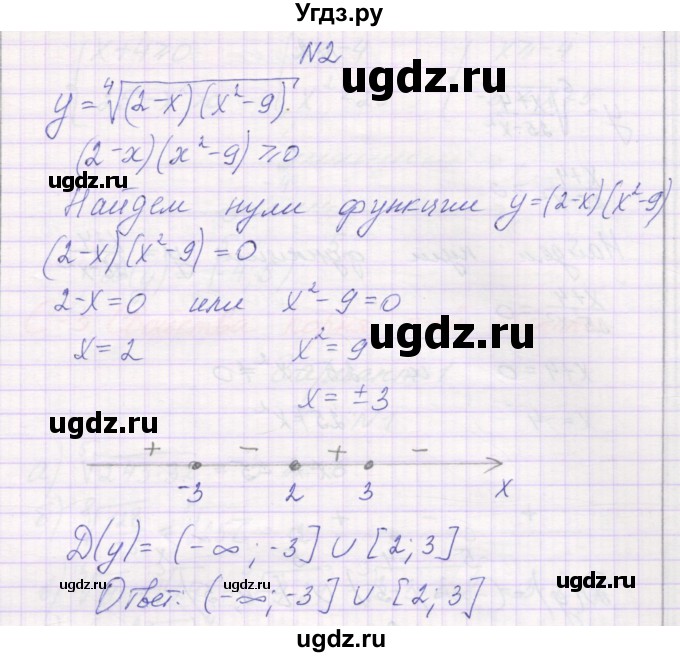 Угдз.ру
N2
ugdz.ru
y = ⁴√(2-x)(x²-9).
(2-x)(x²-9) ⩾ 0
ugdz.ru
ugdz.ru
Найдем нули функции y=(2-x)(x²-9)
(2-x)(x²-9) = 0
ugdz.ru
2-x=0 или x²-9=0
x = 2 x² = 9
ugdz.ru
ugdz.ru
x = ±3
+ - + -
-3 2 3 x
ugdz.ru
D(y) = (-∞; -3] ∪ [2; 3]
ugdz.ru ugdz.ru
Ответ: (-∞; -3] ∪ [2; 3]
ugdz.ru